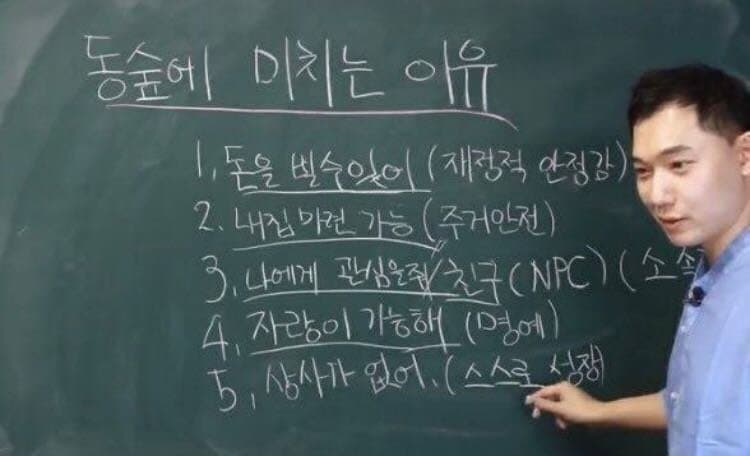 동숲에 미치는 이유
1. 돈을 벌수있어 (재정적 안정감)
2. 내집 마련 가능 (주거안전)
3. 나에게 관심을줘/친구 (NPC) (소속
4. 자랑이 가능해 (명예)
5. 상사가 없어. (스스로 성장)